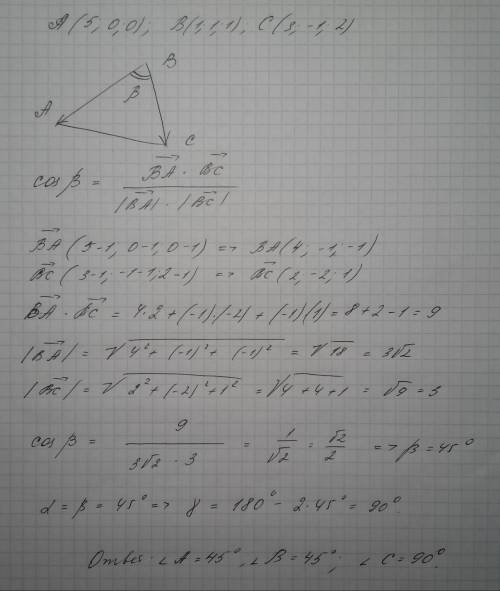 A(5; 0; 0); B(1; 1; 1); C(3; -1; 2)
B
β
A
C
cos β = (BA · BC) / (|BA| · |BC|)
BA (5-1, 0-1, 0-1) => BA(4; -1; -1)
BC (3-1; -1-1; 2-1) => BC(2; -2; 1)
BA · BC = 4·2 + (-1)·(-2) + (-1)(1) = 8+2-1 = 9
|BA| = √(4² + (-1)² + (-1)²) = √18 = 3√2
|BC| = √(2² + (-2)² + 1²) = √(4+4+1) = √9 = 3
cos β = 9 / (3√2 · 3) = 1/√2 = √2/2 => β = 45°
α = β = 45° => γ = 180° - 2·45° = 90°.
Ответ: ∠A = 45°, ∠B = 45°; ∠C = 90°.